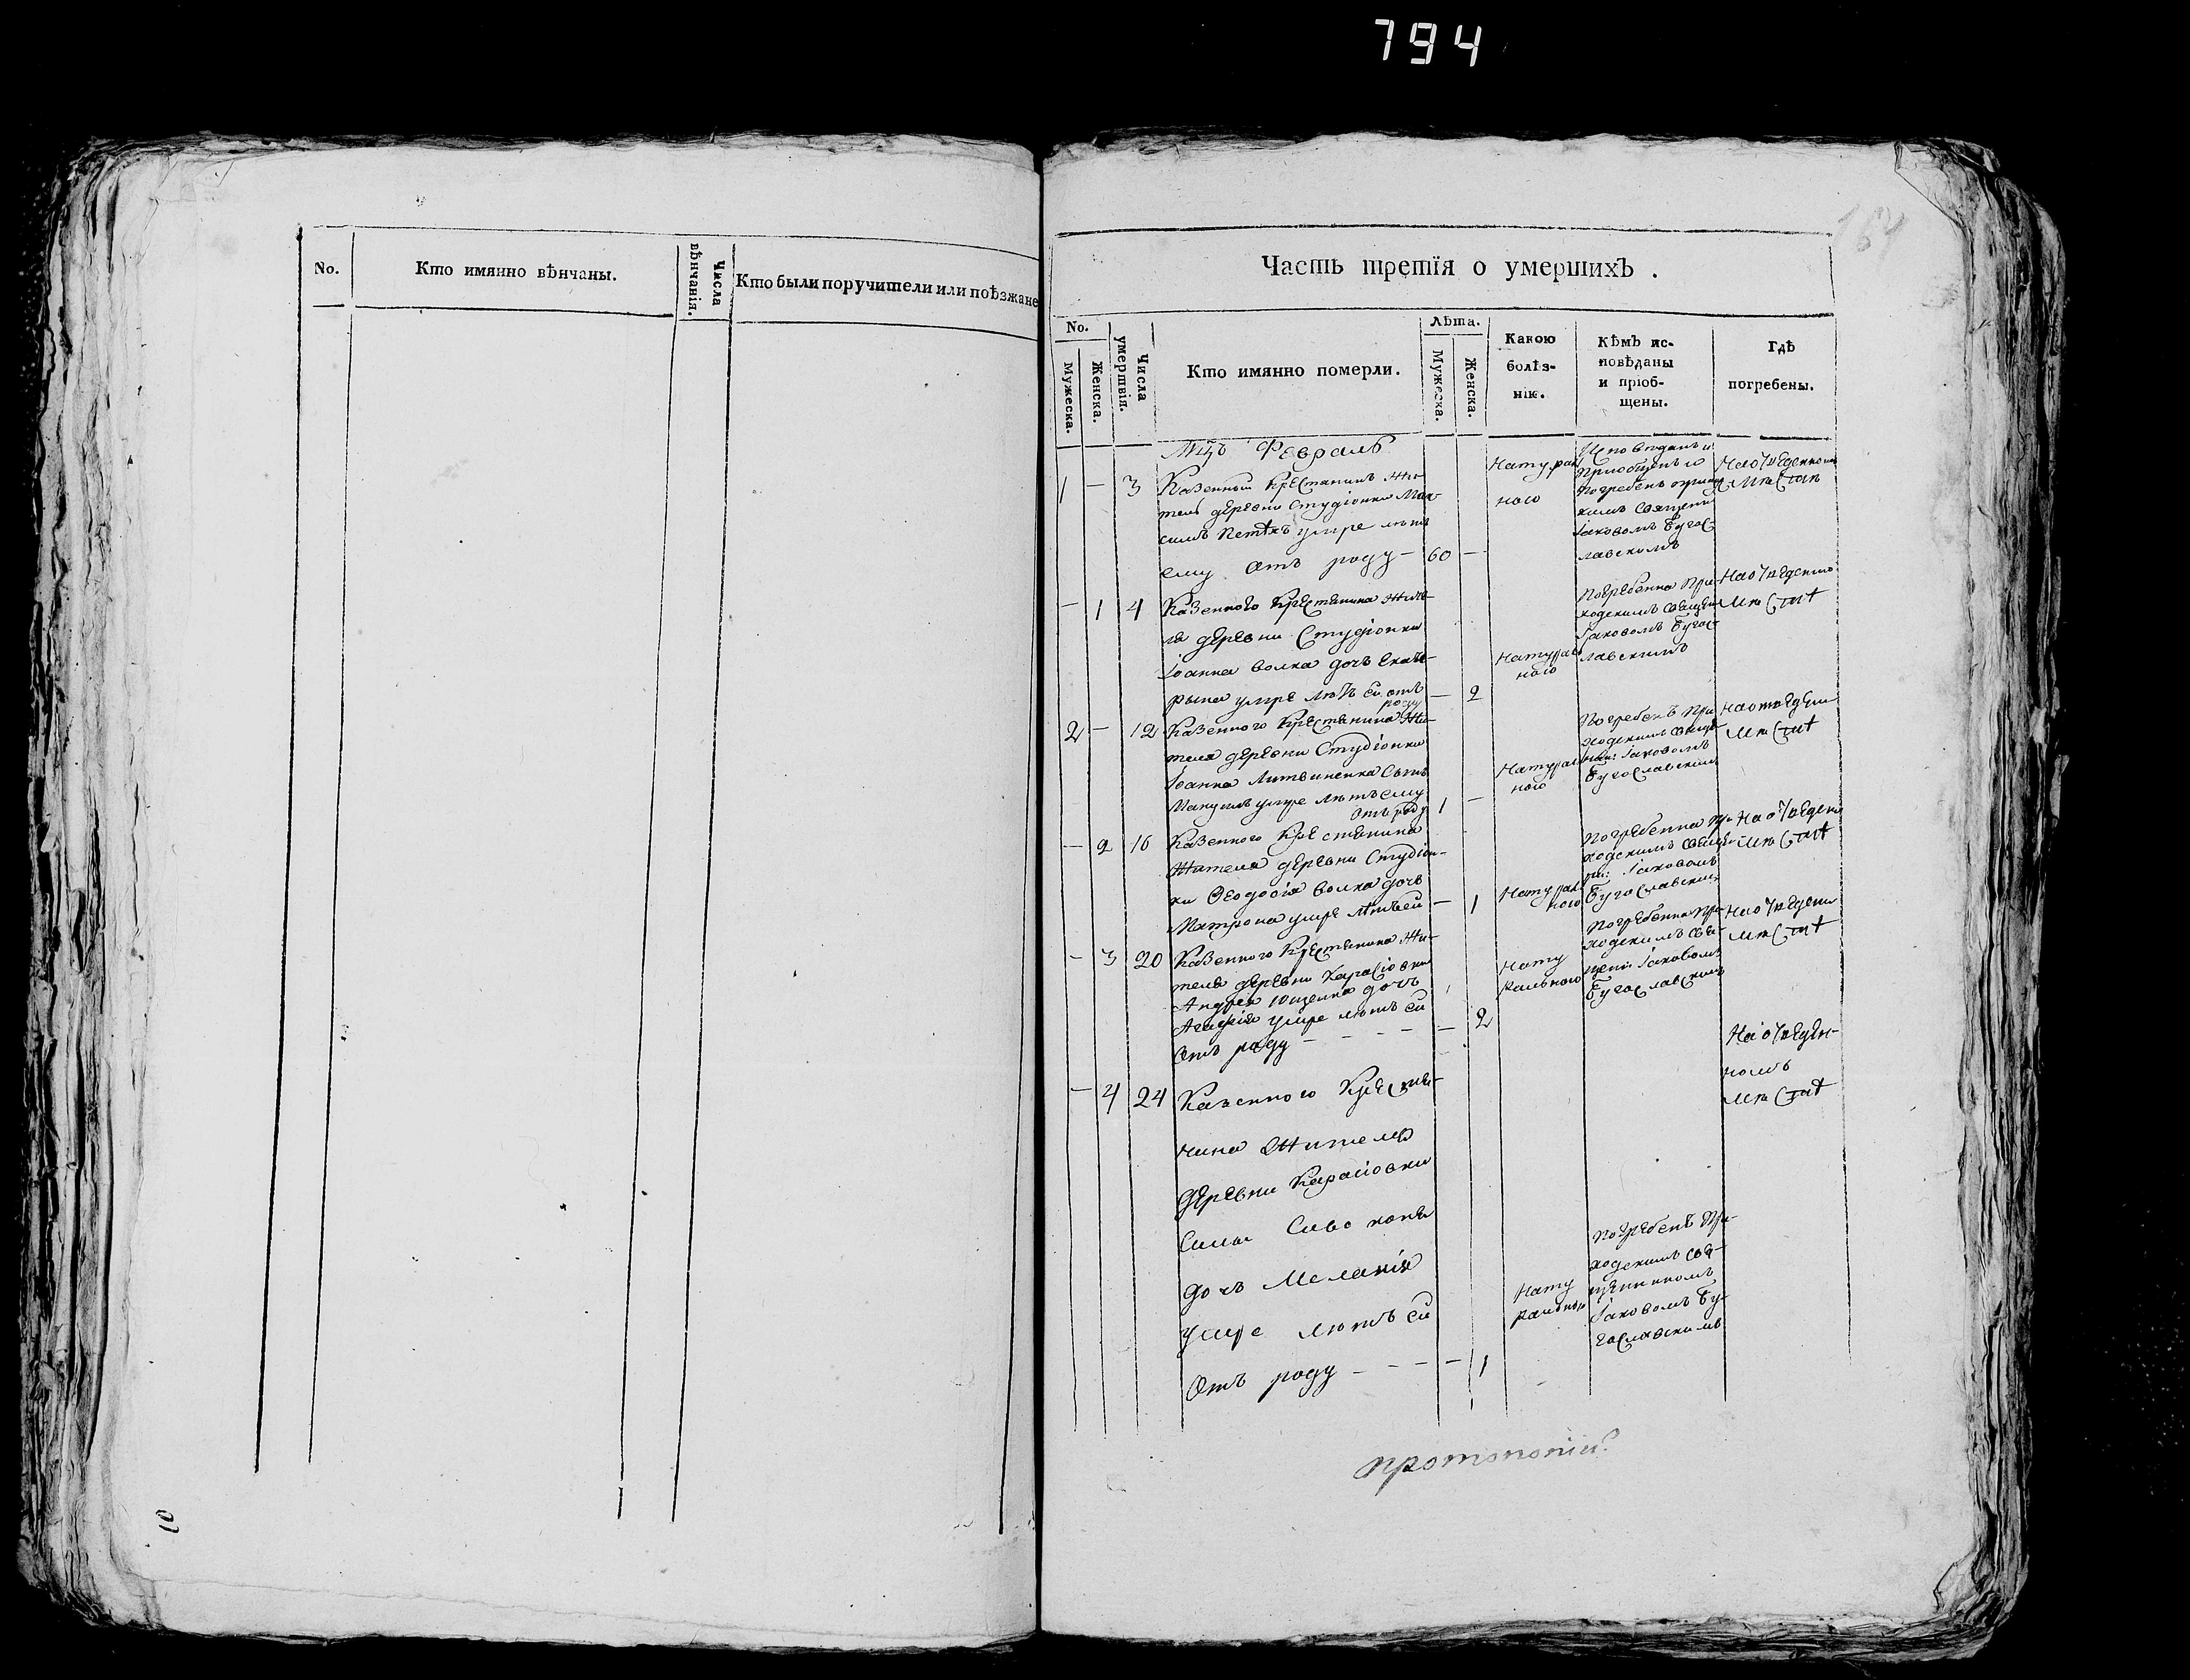 794
164
No.
Кто имянно вѣнчаны.
Числа вѣнчанія.
Кто были поручители или поѣзжане
10
Часть третія о умершихъ .
No.
Мужеска.
Женска.
Числа умертвія.
Кто имянно померли.
Лѣта.
Мужеска.
Женска.
Какою
болѣз-
нію.
Кѣмъ ис-
повѣданы
и пріоб-
щены.
Гдѣ
погребены.
Мцъ Февраль
1 — 3 Казенный Крестянинъ Жи-
тель деревни Студіонки Мак-
симъ умре лѣтъ
ему отъ роду — 60 —
Натурал
ного
Исповѣданъ и
приобщенъ и
Погребенъ
Священ
Іаковомъ Бугос-
лавскимъ
На отведенномъ
мѣстѣ
— 1 4 Казенного Крестянина Жите-
ля деревни Студіонки
Іоанна Волка дочъ Екате-
рына умре лѣтъ ей отъ
роду — 2
Натурал
ного
Погребенна При-
ходскимъ Свещен
Іаковомъ Бугос-
лавскимъ
На отведенно
мѣстѣ
2 — 12 Казенного Крестянина Жи-
теля деревни Студіонки
Іоанна Литвиненка Сынъ
умре лѣтъ ему
отъ роду 1 —
Натурал
ного
Погребенъ При
ходскимъ Свяще
Іаковомъ
Бугославскимъ
На отведен
мѣстѣ
— 2 16 Казенного Крестянина
Жителя деревни Студіон-
ки Ѳеодосія Волка дочъ
Матрона умре лѣтъ ей — 1
Натурал
ного
Погребенна Пр
ходскимъ
Іаковомъ
Бугославским
На отведен
мѣстѣ
— 3 20 Казенного Крестянина Жи-
теля деревни Карасіовки
Андрея Ющенка дочъ
умре лѣтъ ей
Отъ роду — — — — 2
Нату
рального
Погребенна Пр
ходскимъ Свя-
щен: Іаковомъ
Бугославскимъ
На отведен
мѣстѣ
— 4 24 Казенного Крестя-
нина Жителя
деревни Карасіовки
Симы Сиво коня
дочъ Меланія
умре лѣтъ ей
Отъ роду — — — — 1
Нату
рального
Погребенъ При-
ходскимъ Свя-
щенникомъ
Іаковомъ Бу-
гославскимъ
На отведен-
номъ
мѣстѣ
протопопіи